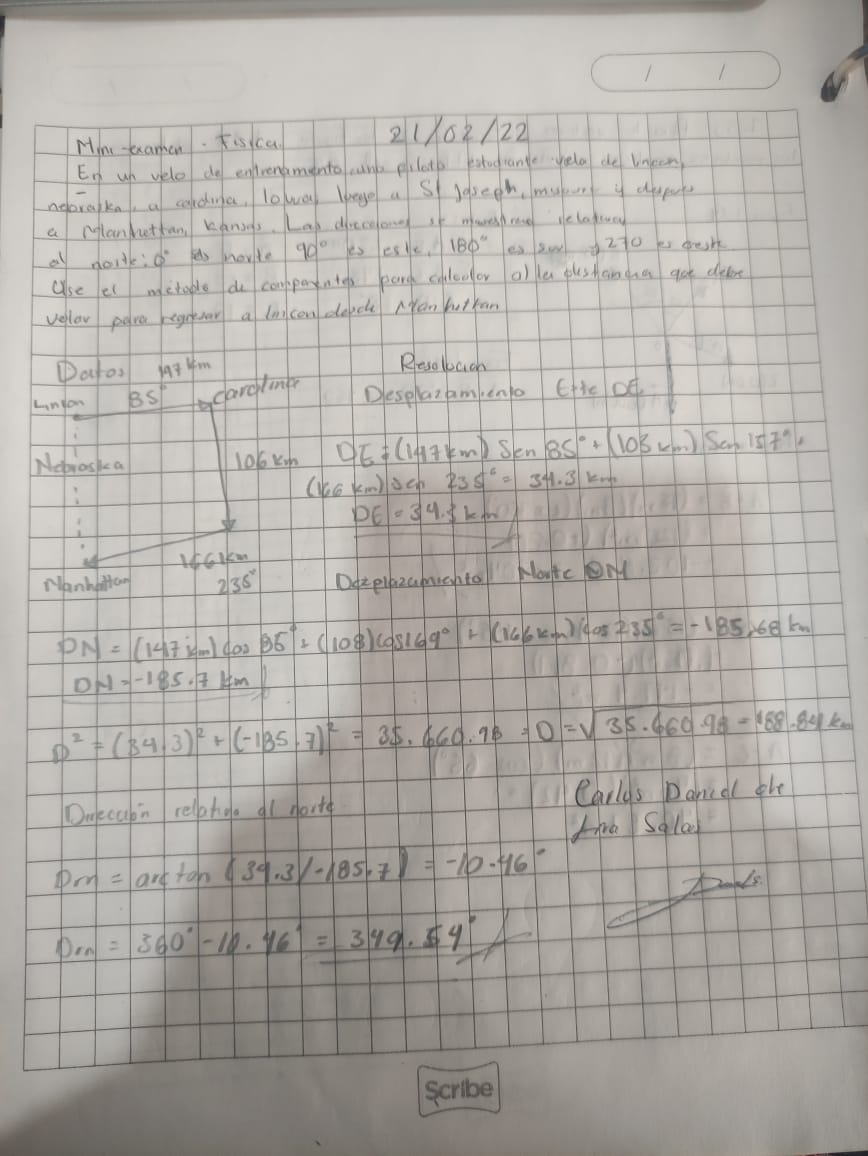 Mini-examen. Física. 21/02/22
En un velo de entrenamiento, una piloto estudiante vela de lincon,
nebraska, a carolina, Iowa, luego a St Joseph, y después
a Manhattan, Kansas. Las direcciones se muestran
al norte: 0° es norte 90° es este, 180° es sur y 270 es oeste
Use el método de componentes para calcular a) la distancia que debe
velar para regresar a lincon desde Manhattan
Datos 147 km
Resolución
85° carolina
Desplazamiento Este DE
Nebraska
106 km
DE = (147 km) Sen 85° + (106 km) Sen 157° +
(166 km) Sen 235° = 34.3 km
DE = 34.3 km
166 km
Manhattan 235°
Dezplazamiento Norte DN
DN = (147 km) cos 85° + (108) cos 169° + (166 km) cos 235° = -185.68 km
DN = -185.7 km
D² = (34.3)² + (-185.7)² = 35.660.98 = D = √35.660.98 = 188.84 km
Dirección relativa al norte
Carlos Daniel
Salas
Drn = arc tan (34.3/-185.7) = -10.46°
Drn = 360° - 10.46° = 349.54°
Scribe